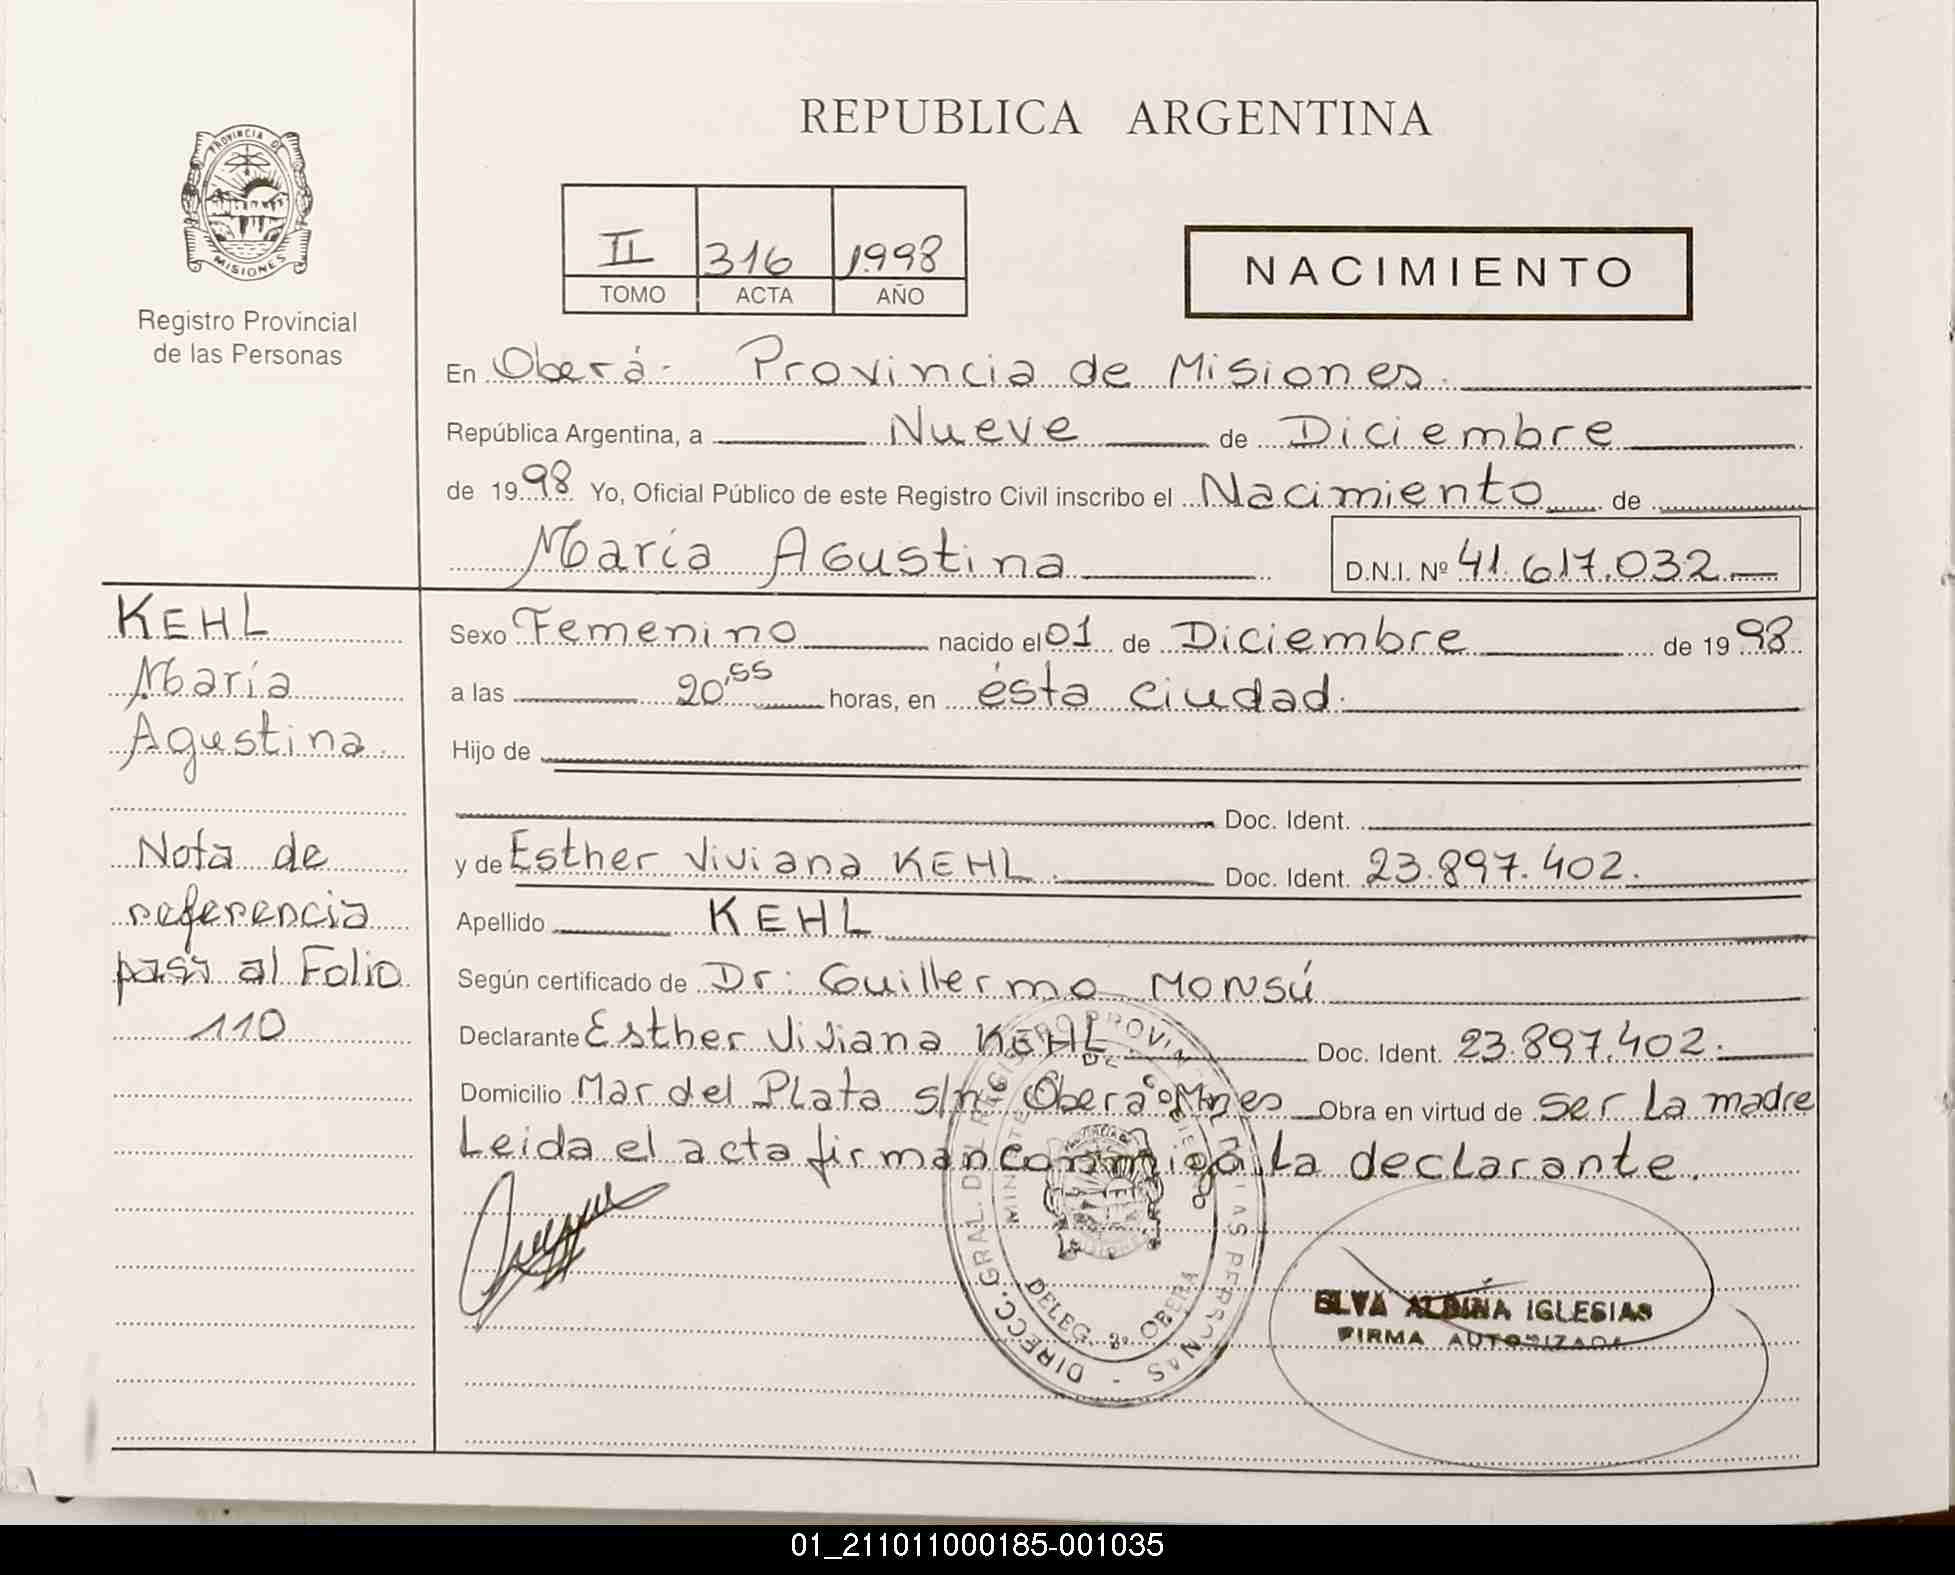 REPUBLICA ARGENTINA
PROVINCIA DE
MISIONES
Registro Provincial
de las Personas
II 316 1998
TOMO ACTA AÑO
NACIMIENTO
En Oberá- Provincia de Misiones.
República Argentina, a Nueve de Diciembre
de 1998 Yo, Oficial Público de este Registro Civil inscribo el Nacimiento de
María Agustina D.N.I. Nº 41.617.032
KEHL
María
Agustina.
Nota de
referencia
pasa al Folio
110
Sexo Femenino nacido el 01 de Diciembre de 1998
a las 20,55 horas, en ésta ciudad.
Hijo de
Doc. Ident.
y de Esther Viviana KEHL. Doc. Ident. 23.897.402.
Apellido KEHL
Según certificado de Dr: Guillermo Monsú
Declarante Esther Viviana KEHL. Doc. Ident. 23.897.402.
Domicilio Mar del Plata s/nº Oberá Mnes Obra en virtud de ser la madre
Leida el acta firman conmigo la declarante.
DIRECC. GRAL. DEL REGISTRO PROVIN DE LAS PERSONAS
DELEG. 2º OBERA
ELVA ALBINA IGLESIAS
FIRMA AUTORIZADA
01_211011000185-001035